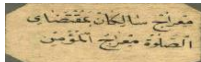 معراج سالكان بمقتضاى
الصلوة معراج المؤمن